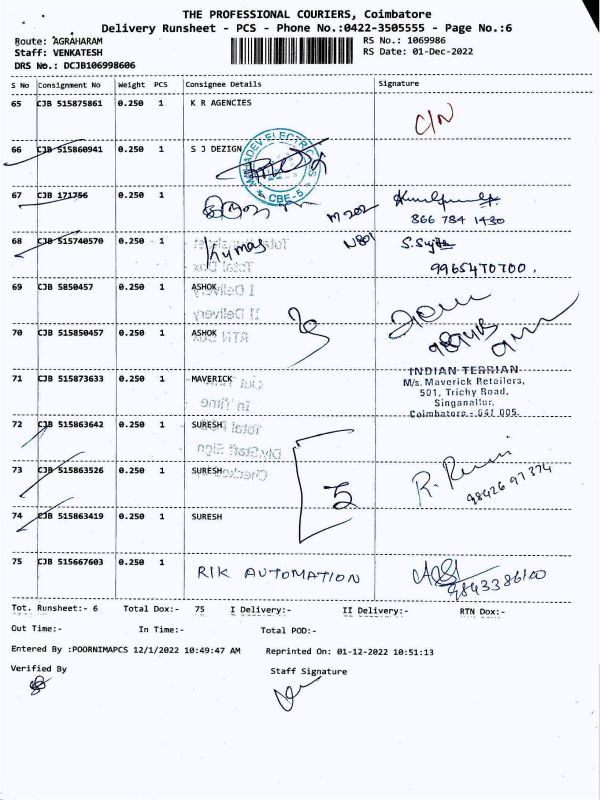 THE PROFESSIONAL COURIERS, Coimbatore
Delivery Runsheet - PCS - Phone No.:0422-3505555 - Page No.:6
Route: AGRAHARAM
Staff: VENKATESH
DRS No.: DCJB106998606
RS No.: 1069986
RS Date: 01-Dec-2022
S No Consignment No Weight PCS Consignee Details Signature
65 CJB 515875861 0.250 1 K R AGENCIES C/N
66 CJB 515860941 0.250 1 S J DEZIGN
CBE-5
67 CJB 171756 0.250 1 M202
866 784 1430
68 CJB 515740570 0.250 1 Kumas N801 S. Sujita
9965470700.
69 CJB 5850457 0.250 1 ASHOK
70 CJB 515850457 0.250 1 ASHOK
71 CJB 515873633 0.250 1 MAVERICK
INDIAN TERRIAN
M/s. Maverick Retailers,
501, Trichy Road,
Singanallur,
Coimbatore - 641 005.
72 CJB 515863642 0.250 1 SURESH
73 CJB 515863526 0.250 1 SURESH 5
74 CJB 515863419 0.250 1 SURESH
75 CJB 515667603 0.250 1 RIK AUTOMATION 9843386100
Tot. Runsheet:- 6 Total Dox:- 75 I Delivery:- II Delivery:- RTN Dox:-
Out Time:- In Time:- Total POD:-
Entered By :POORNIMAPCS 12/1/2022 10:49:47 AM Reprinted On: 01-12-2022 10:51:13
Verified By Staff Signature